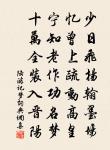 少日飛揚翰墨場
憶曾上疏動高皇
寧知老作功名夢
十萬全裝入晉陽
陸游記夢詞典網集